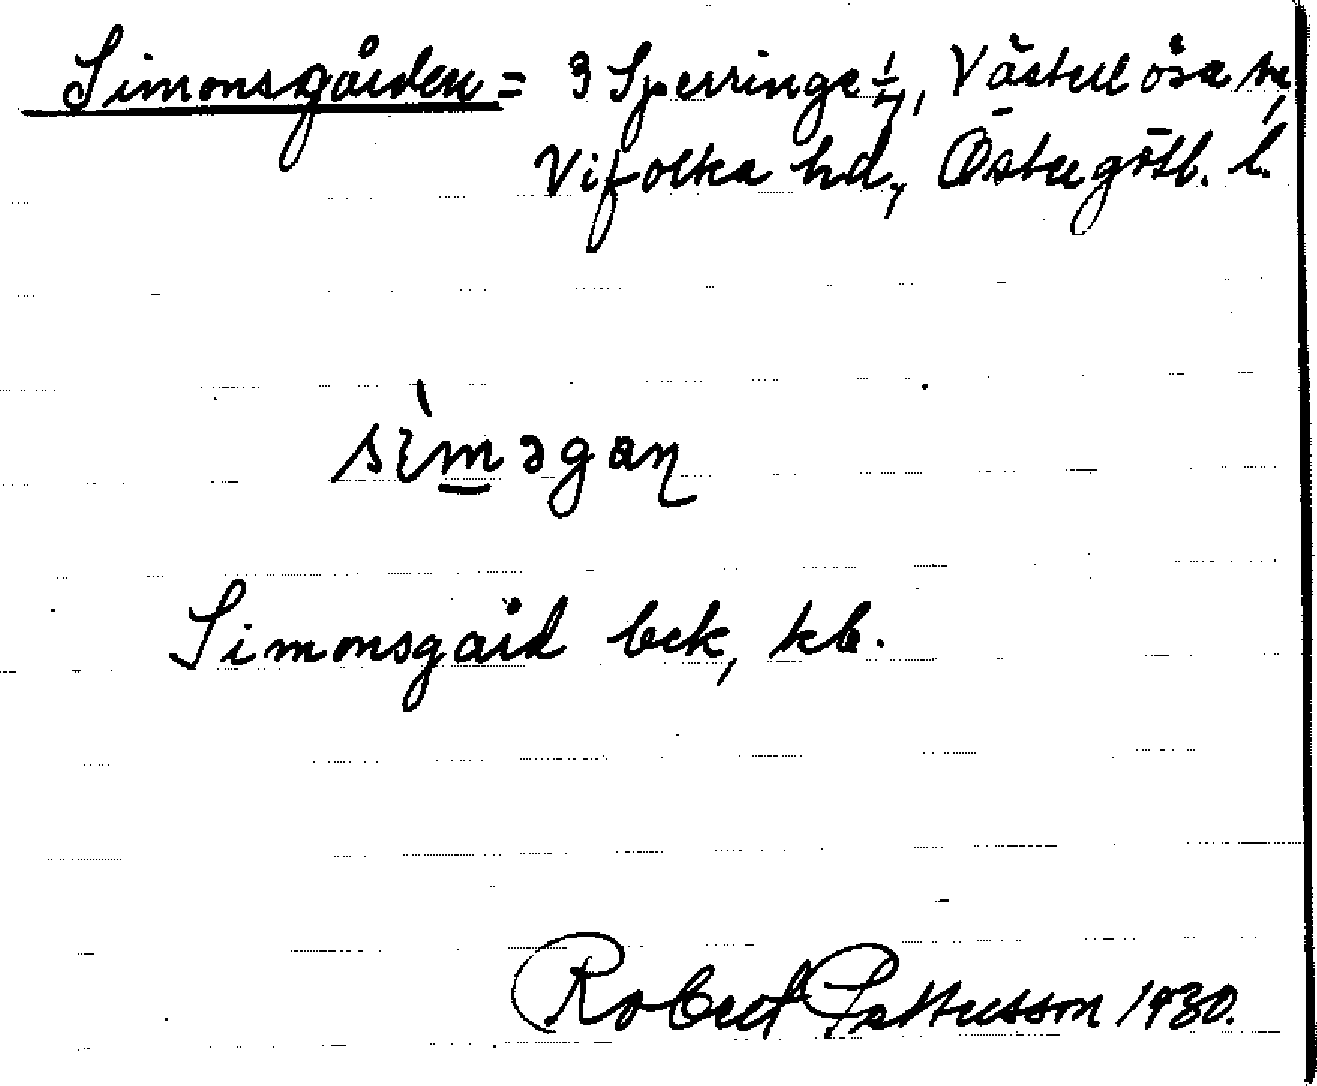 Simonsgården = 3 Sperringe 1/7, Västerlösa sn,
Vifolka hd, Östergötl. l.
sìməgaɳ
Simonsgård bek, kb.
Robert Pettersson 1930.